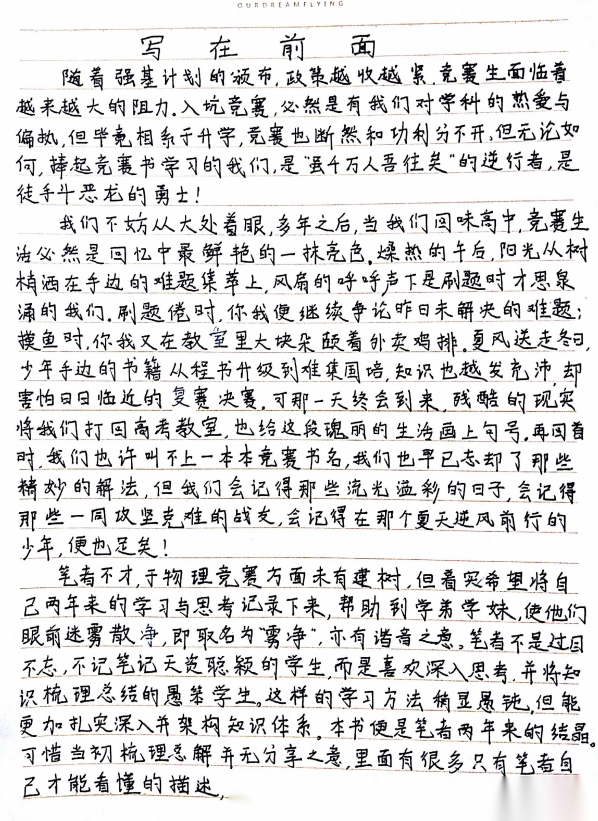 OURDREAMFLYING
写在前面
随着强基计划的颁布，政策越收越紧，竞赛生面临着
越来越大的阻力。入坑竞赛，必然是有我们对学科的热爱与
偏执，但毕竟相系于升学，竞赛也断然和功利分不开。但无论如
何，捧起竞赛书学习的我们，是“虽千万人吾往矣”的逆行者，是
徒手斗恶龙的勇士！
我们不妨从大处着眼，多年之后，当我们回味高中，竞赛生
活必然是回忆中最鲜艳的一抹亮色。燥热的午后，阳光从树
梢洒在手边的难题集萃上，风扇的呼呼声下是刷题时才思泉
涌的我们。刷题倦时，你我便继续争论昨日未解决的难题；
摸鱼时，你我又在教室里大块朵颐着外卖鸡排。夏风送走冬日，
少年手边的书籍从程书升级到难集国培，知识也越发充沛，却
害怕日日临近的复赛决赛。可那一天终会到来，残酷的现实
将我们打回高考教室，也给这段瑰丽的生活画上句号。再回首
时，我们也许叫不上一本本竞赛书名，我们也早已忘却了那些
精妙的解法，但我们会记得那些流光溢彩的日子，会记得
那些一同攻坚克难的战友，会记得在那个夏天逆风前行的
少年，便也足矣！
笔者不才，于物理竞赛方面未有建树，但着实希望将自
己两年来的学习与思考记录下来，帮助到学弟学妹，使他们
眼前迷雾散净，即取名为“雾净”，亦有谐音之意。笔者不是过目
不忘，不记笔记天资聪颖的学生，而是喜欢深入思考，并将知
识梳理总结的愚笨学生。这样的学习方法稍显愚钝，但能
更加扎实深入并架构知识体系。本书便是笔者两年来的结晶。
可惜当初梳理总解并无分享之意，里面有很多只有笔者自
己才能看懂的描述，